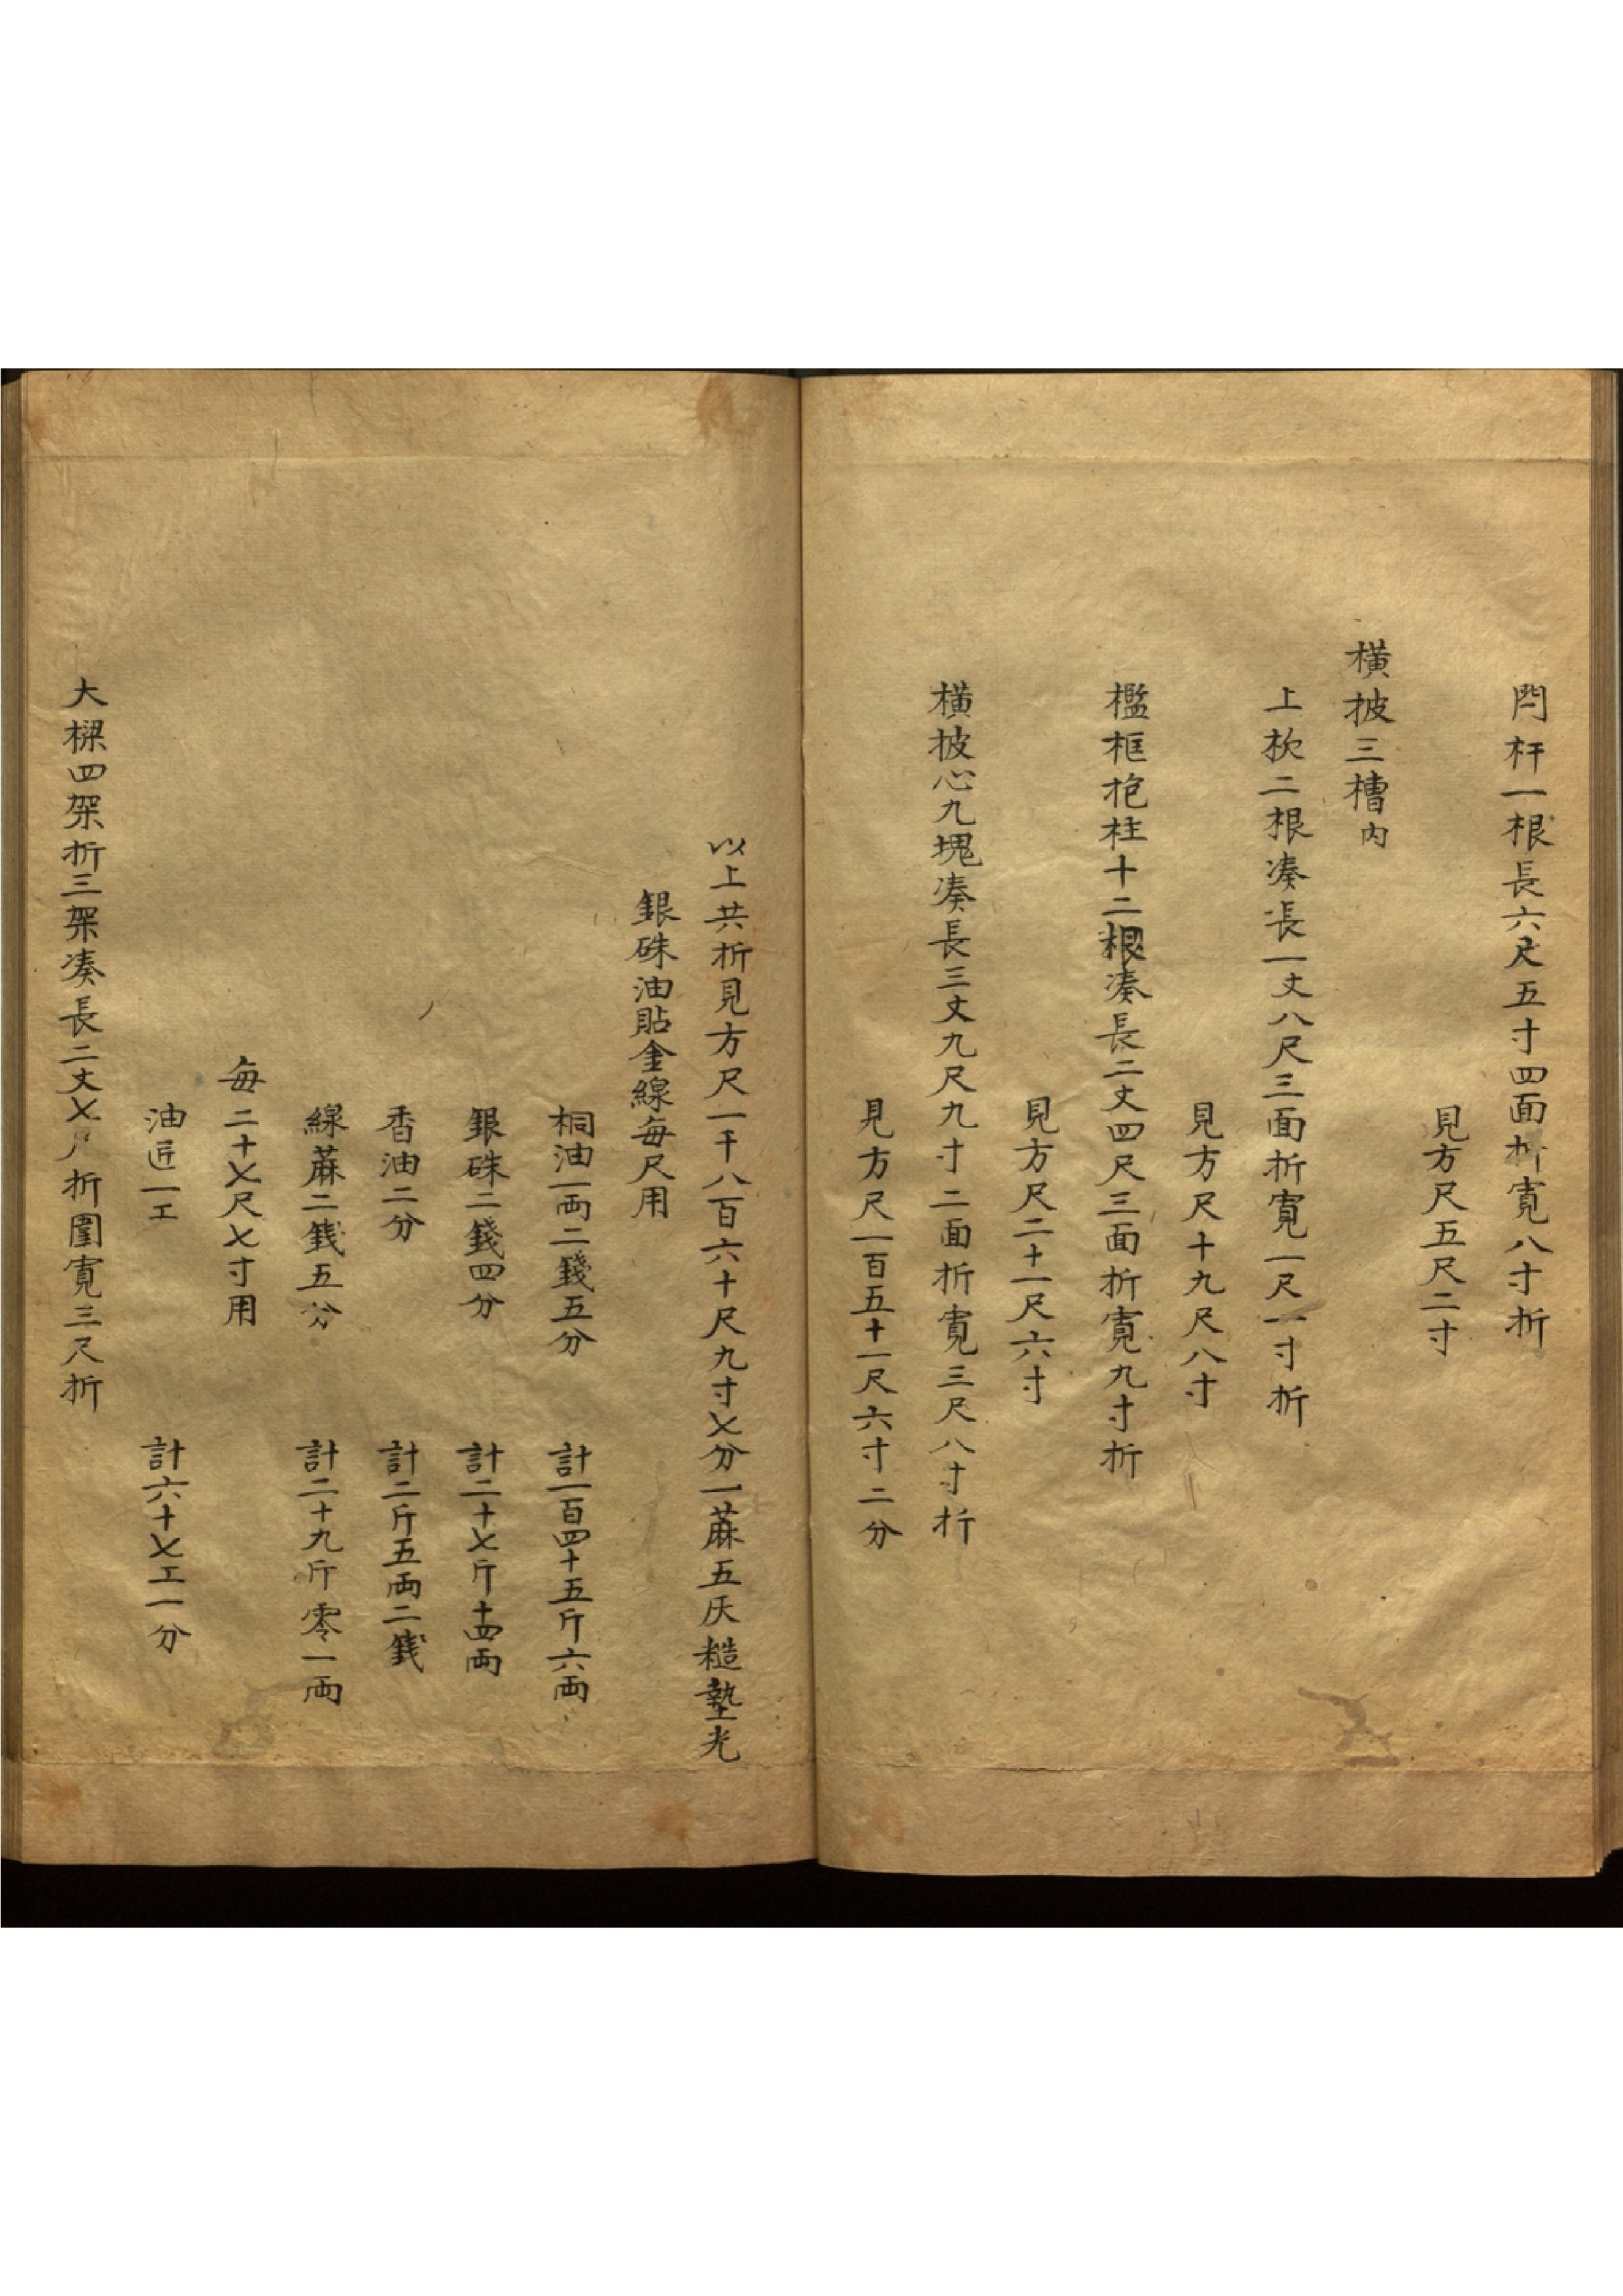 閂杆一根長六尺五寸四面折寬八寸折
見方尺五尺二寸
橫披三槽內
上枕二根凑長一丈八尺三面折寬一尺一寸折
見方尺十九尺八寸
檻框抱柱十二根凑長二丈四尺三面折寬九寸折
見方尺二十一尺六寸
橫披心九塊凑長三丈九尺九寸二面折寬三尺八寸折
見方尺一百五十一尺六寸二分
以上共折見方尺一千八百六十尺九寸七分一蔴五灰糙墊光
銀硃油貼金線每尺用
桐油一両二錢五分 計一百四十五斤六両
銀硃二錢四分 計二十七斤十四両
香油二分 計二斤五両二錢
線蔴二錢五分 計二十九斤零一両
每二十七尺七寸用
油匠一工 計六十七工一分
大樑四架折三架凑長二丈七尺折圍寬三尺折